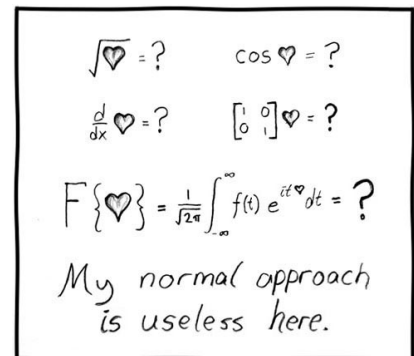 √♥ = ? cos ♥ = ?
d/dx ♥ = ? [1 0 0 1] ♥ = ?
F{♥} = 1/√2π ∫_-∞^∞ f(t) e^it♥ dt = ?
My normal approach
is useless here.